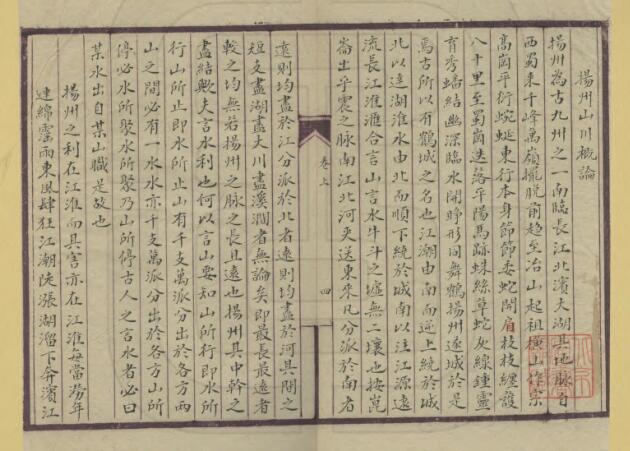 揚州山川概論
揚州為古九州之一南臨長江北濱大湖其地脉自
西蜀東千峰萬嶺擺脫前趋至冶山起祖橫山作宗
高崗平衍蜿蜒東行本身節節委蛇開肩枝枝纏護
八十里至蜀崗迭落平陽馬跡蛛絲草蛇灰線鍾靈
育秀蟠結幽深臨水開睜形同舞鶴揚州逐城於是
焉古所以有鶴城之名也江潮由南而逆上繞於城
北以達湖淮水由北而順下繞於城南以注江源遠
流長江淮滙合言山言水牛斗之墟無二壤也按崑
崙出乎震之脉南江北河夾送東來凡分派於南者
卷上
四
遠則均盡於江分派於北者遠則均盡於河其間之
短支盡湖盡大川盡溪澗者無論矣即最長最遠者
較之均無若揚州之脉之長且遠也揚州其中幹之
盡結歟夫言水利也何以言山要知山所行即水所
行山所止即水所止山有千支萬派分出於各方兩
山之間必有一水水亦千支萬派分出於各方山所
停必水所聚水所聚乃山所停古人之言水者必曰
某水出自某山職是故也
揚州之利在江淮而其害亦在江淮每當澇年
連綿霪雨東風肆狂江潮陡漲湖溜下奔濱江